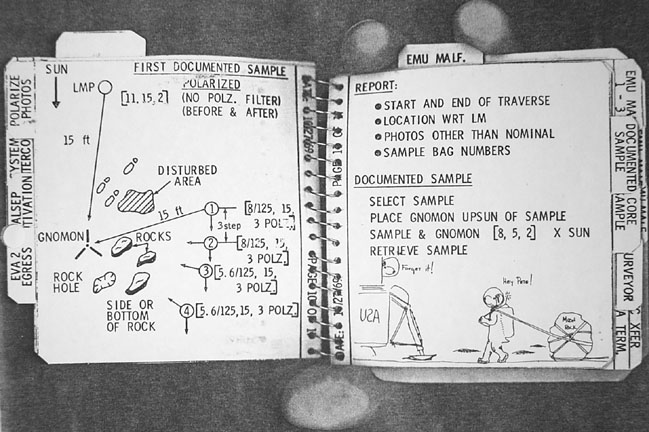 SUN
FIRST DOCUMENTED SAMPLE
LMP
[11, 15, 2]
POLARIZED
(NO POLZ. FILTER)
(BEFORE & AFTER)
15 ft
DISTURBED
AREA
15 ft
1
[8/125, 15,
3 POLZ]
3 step
GNOMON
ROCKS
2
[8/125, 15,
3 POLZ.]
3
[5.6/125, 15,
3 POLZ.]
ROCK
HOLE
SIDE OR
BOTTOM
OF ROCK
4
[5.6/125, 15, 3 POLZ.]
POLARIZE
PHOTOS
ALSEP
EVA 2
EGRESS
EMU MALF.
REPORT:
START AND END OF TRAVERSE
LOCATION WRT LM
PHOTOS OTHER THAN NOMINAL
SAMPLE BAG NUMBERS
DOCUMENTED SAMPLE
SELECT SAMPLE
PLACE GNOMON UPSUN OF SAMPLE
SAMPLE & GNOMON [8, 5, 2] X SUN
RETRIEVE SAMPLE
Forget it!
Hey Pete!
USA
MOON
ROCK
EMU MA
DOCUMENTED
SAMPLE
CORE
URVEYOR
XFER
A TERM.